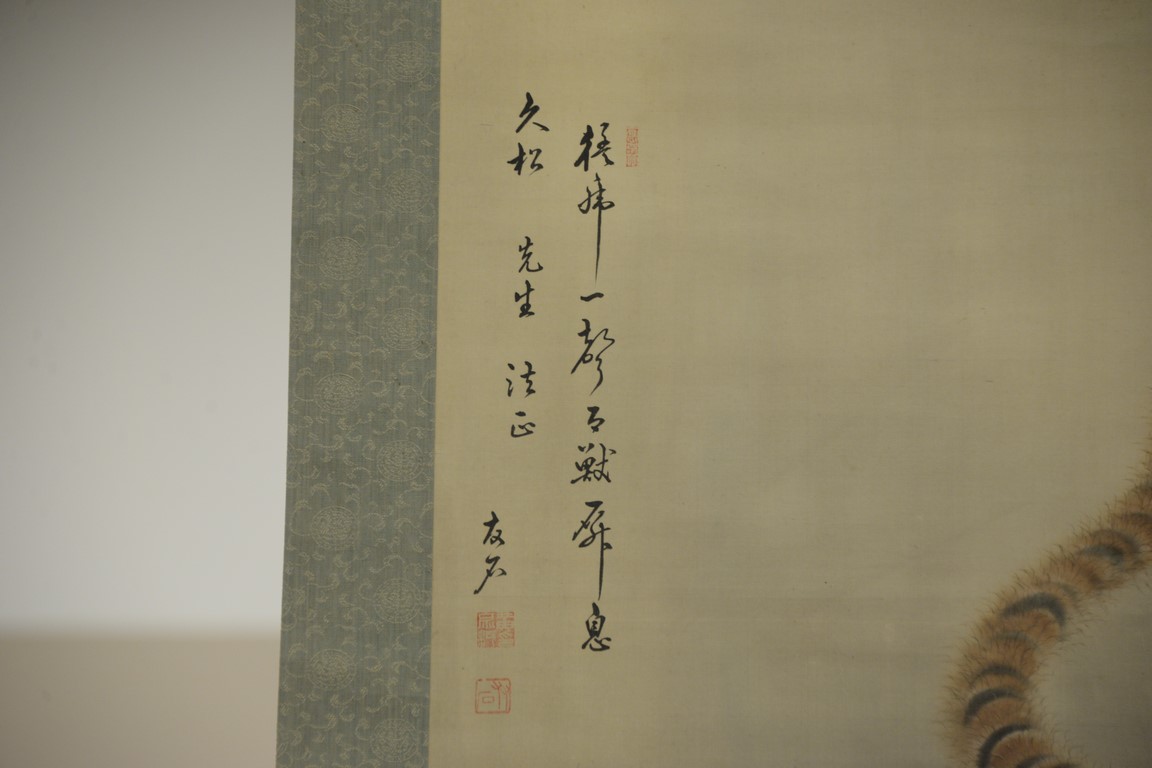 猛虎一聲百獣屏息
久松 先生 法正
友石